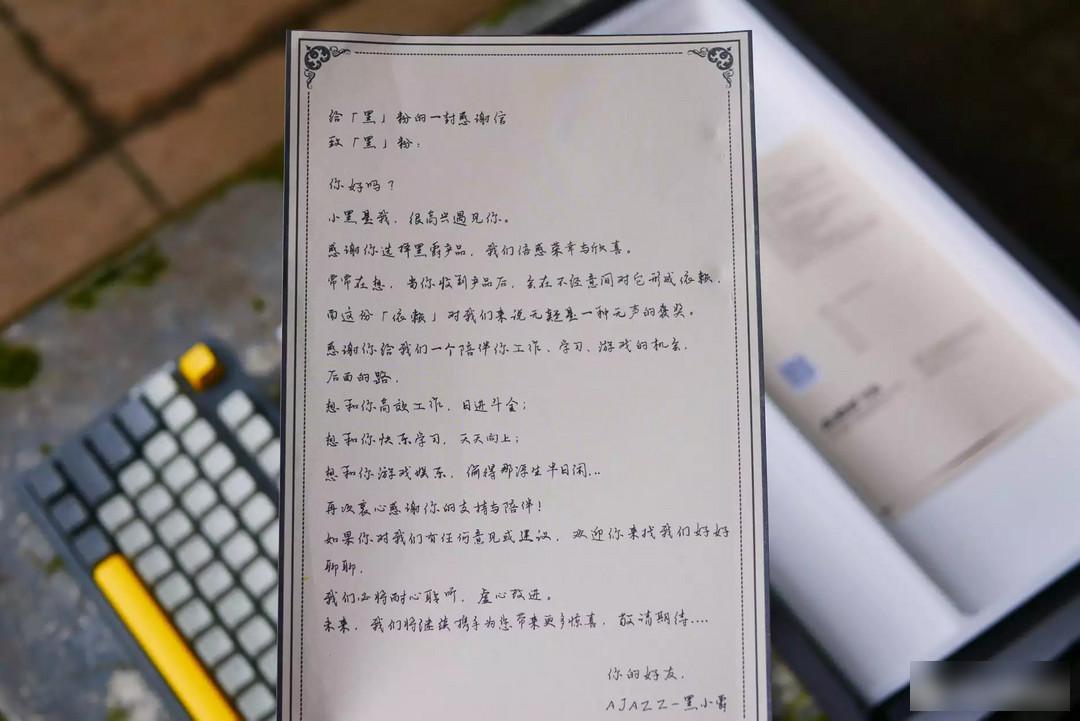 给「黑」粉的一封感谢信
致「黑」粉：
你好吗？
小黑是我，很高兴遇见你。
感谢你选择黑爵产品，我们倍感荣幸与欣喜。
常常在想，当你收到产品后，会在不经意间对它形成依赖，
而这份「依赖」对我们来说无疑是一种无声的褒奖。
感谢你给我们一个陪伴你工作、学习、游戏的机会，
后面的路，
想和你高效工作，日进斗金；
想和你快乐学习，天天向上；
想和你游戏娱乐，偷得那浮生半日闲...
再次衷心感谢你的支持与陪伴！
如果你对我们有任何意见或建议，欢迎你来找我们好好
聊聊，
我们必将耐心聆听，虚心改进。
未来，我们将继续携手为您带来更多惊喜，敬请期待....
你的好友，
AJAZZ-黑小爵